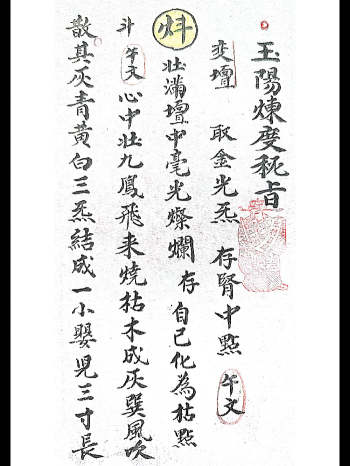 玉陽煉度秘旨
変壇 取金光炁 存腎中點 午文
炓 壮滿壇中毫光燦爛 存自己化為枯㸃
斗 午文 心中壮九鳳飛来燒枯木成灰巽風吹
散其灰青黄白三炁結成一小嬰児三寸長